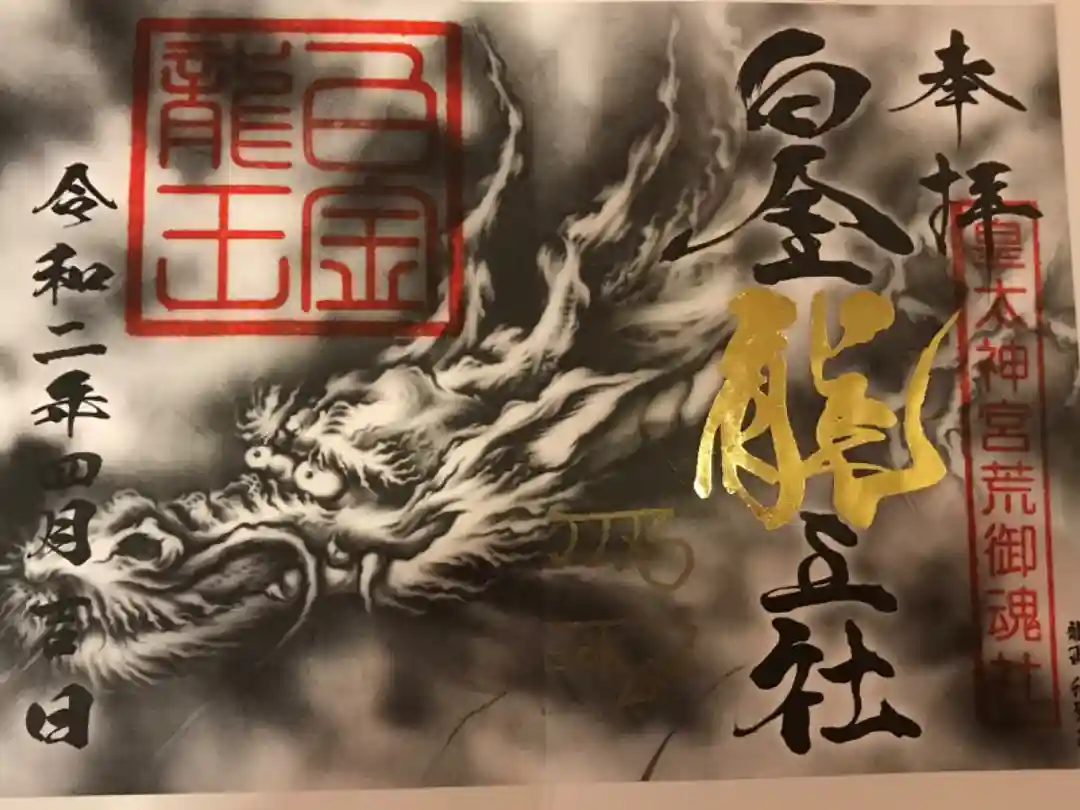 奉拝
皇太神宮荒御魂社
白金龍王社
白金
龍王
令和二年四月吉日